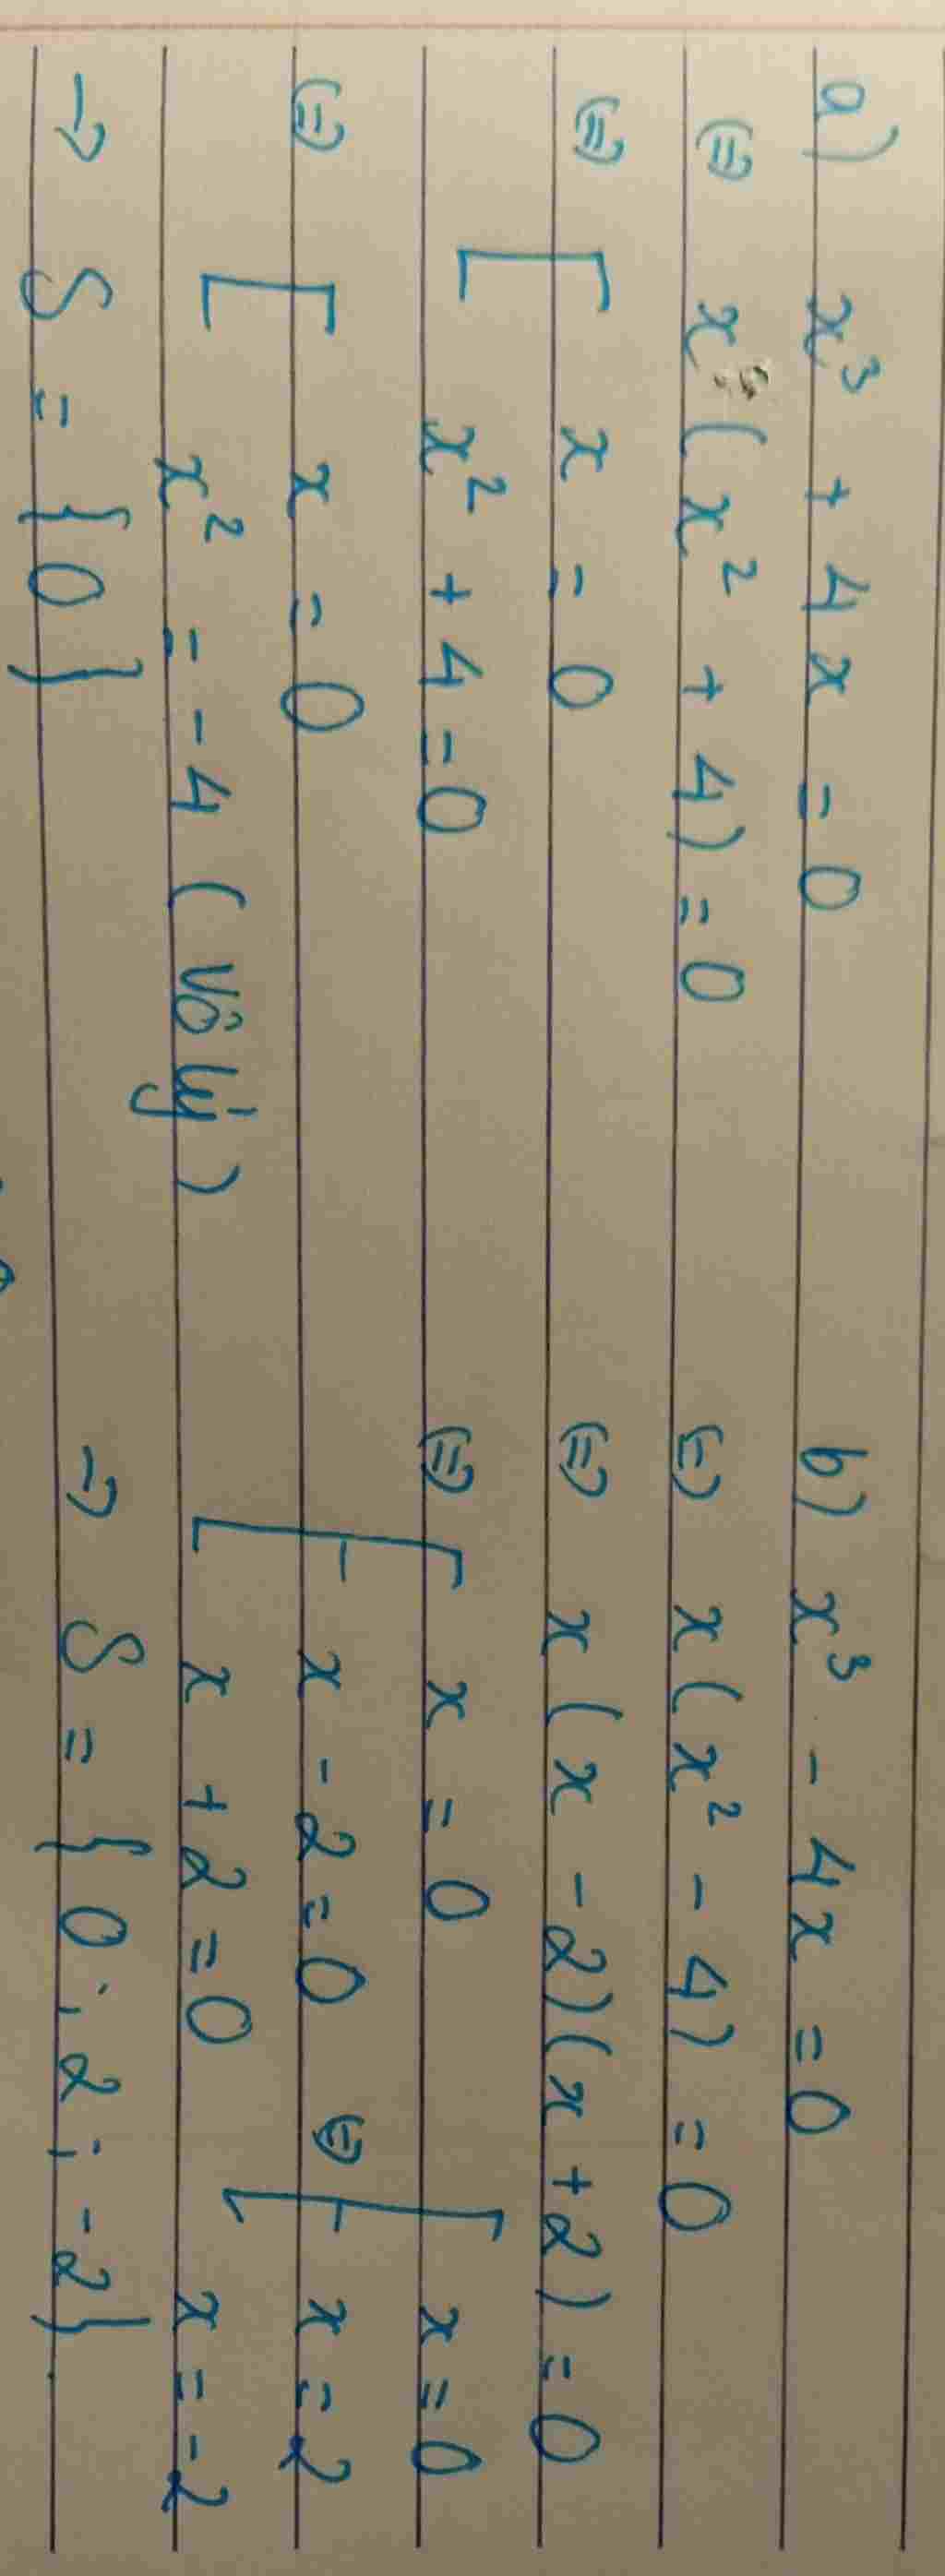 a) x³ + 4x = 0
(=) x (x² + 4) = 0
(=) [ x = 0
x² + 4 = 0
(=) [ x = 0
x² = -4 (vô lý)
→ S = {0}
b) x³ - 4x = 0
(=) x (x² - 4) = 0
(=) x (x - 2)(x + 2) = 0
(=) [ x = 0
x - 2 = 0
x + 2 = 0
(=) [ x = 0
x = 2
x = -2
→ S = {0; 2; -2}.